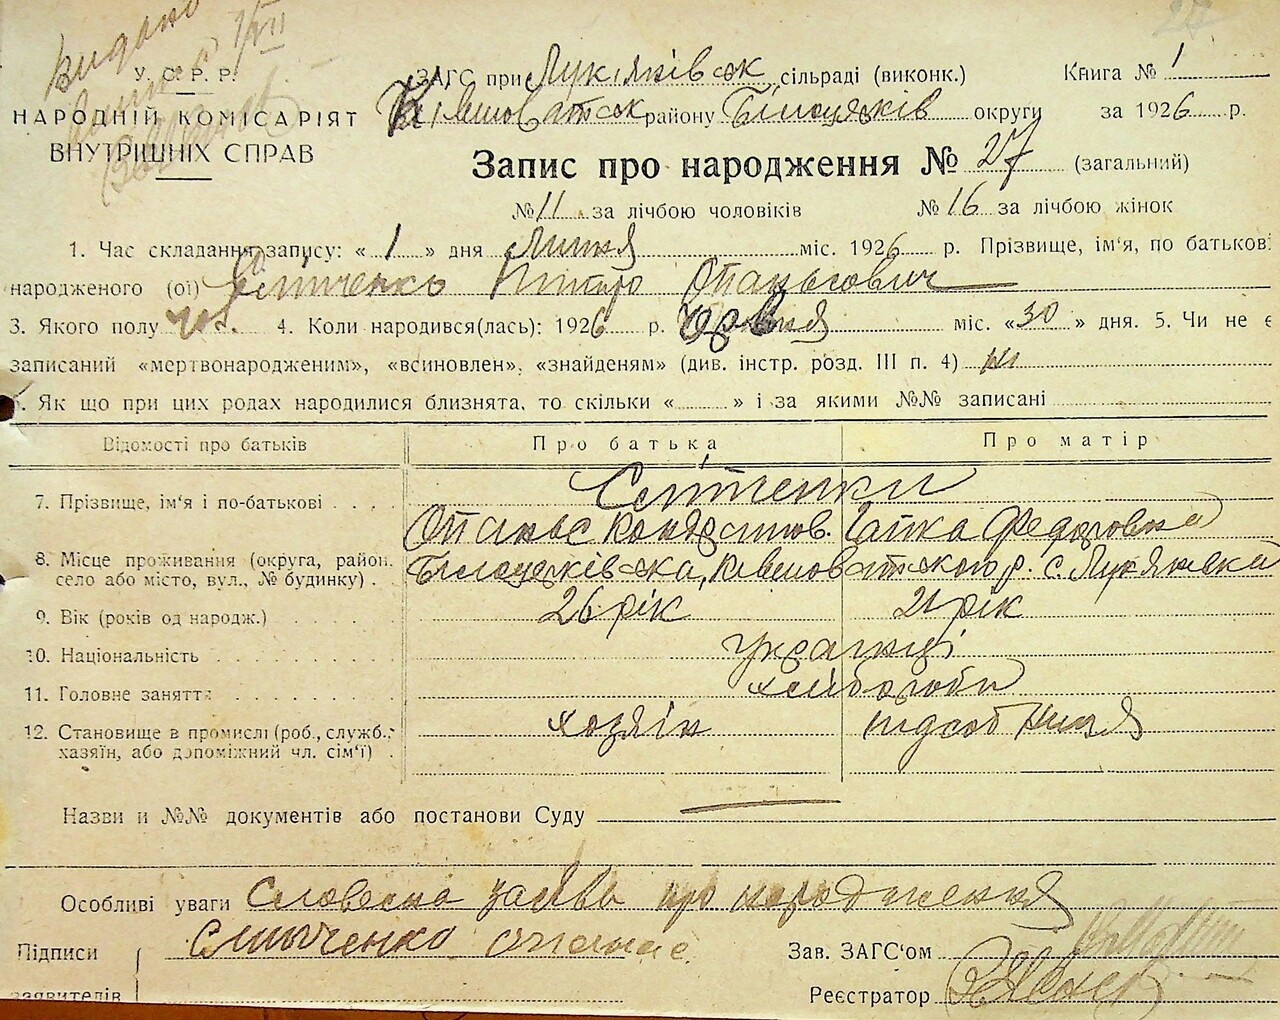 27
видано
У. С. Р. Р.
НАРОДНІЙ КОМІСАРІЯТ
ВНУТРІШНІХ СПРАВ
ЗАГС при Лук'янівськ сільраді (виконк.) Книга № 1
Ківшоватськ району Білоцерків округи за 1926 р.
Запис про народження № 27 (загальний)
№ 11 за лічбою чоловіків № 16 за лічбою жінок
1. Час складання запису: « 1 » дня Липня міс. 1926 р. Прізвище, ім'я, по батькові
народженого (ої) Петро Опанасович
3. Якого полу чол. 4. Коли народився(лась): 1926 р. Червня міс. «30» дня. 5. Чи не є
записаний «мертвонародженим», «всиновлен», «знайденям» (див. інстр. розд. III п. 4) ні
. Як що при цих родах народилися близнята, то скільки « » і за якими №№ записані
Відомості про батьків Про батька Про матір
7. Прізвище, ім'я і по-батькові
Опанас Кондратов. Гапка Федоровна
8. Місце проживання (округа, район, село або місто, вул., № будинку) Білоцерківська, Ківшоватського р. с. Лук'янівка
9. Вік (років од народж.) 26 рік 21 рік
10. Національність Українці
11. Головне заняття хлібороби
12. Становище в промислі (роб., служб., хазяїн, або допоміжний чл. сім'ї) хозяін підсобниця
Назви и №№ документів або постанови Суду
Особливі уваги Словесна заява про народження
Підписи опанас Зав. ЗАГС'ом
заявителів Реєстратор